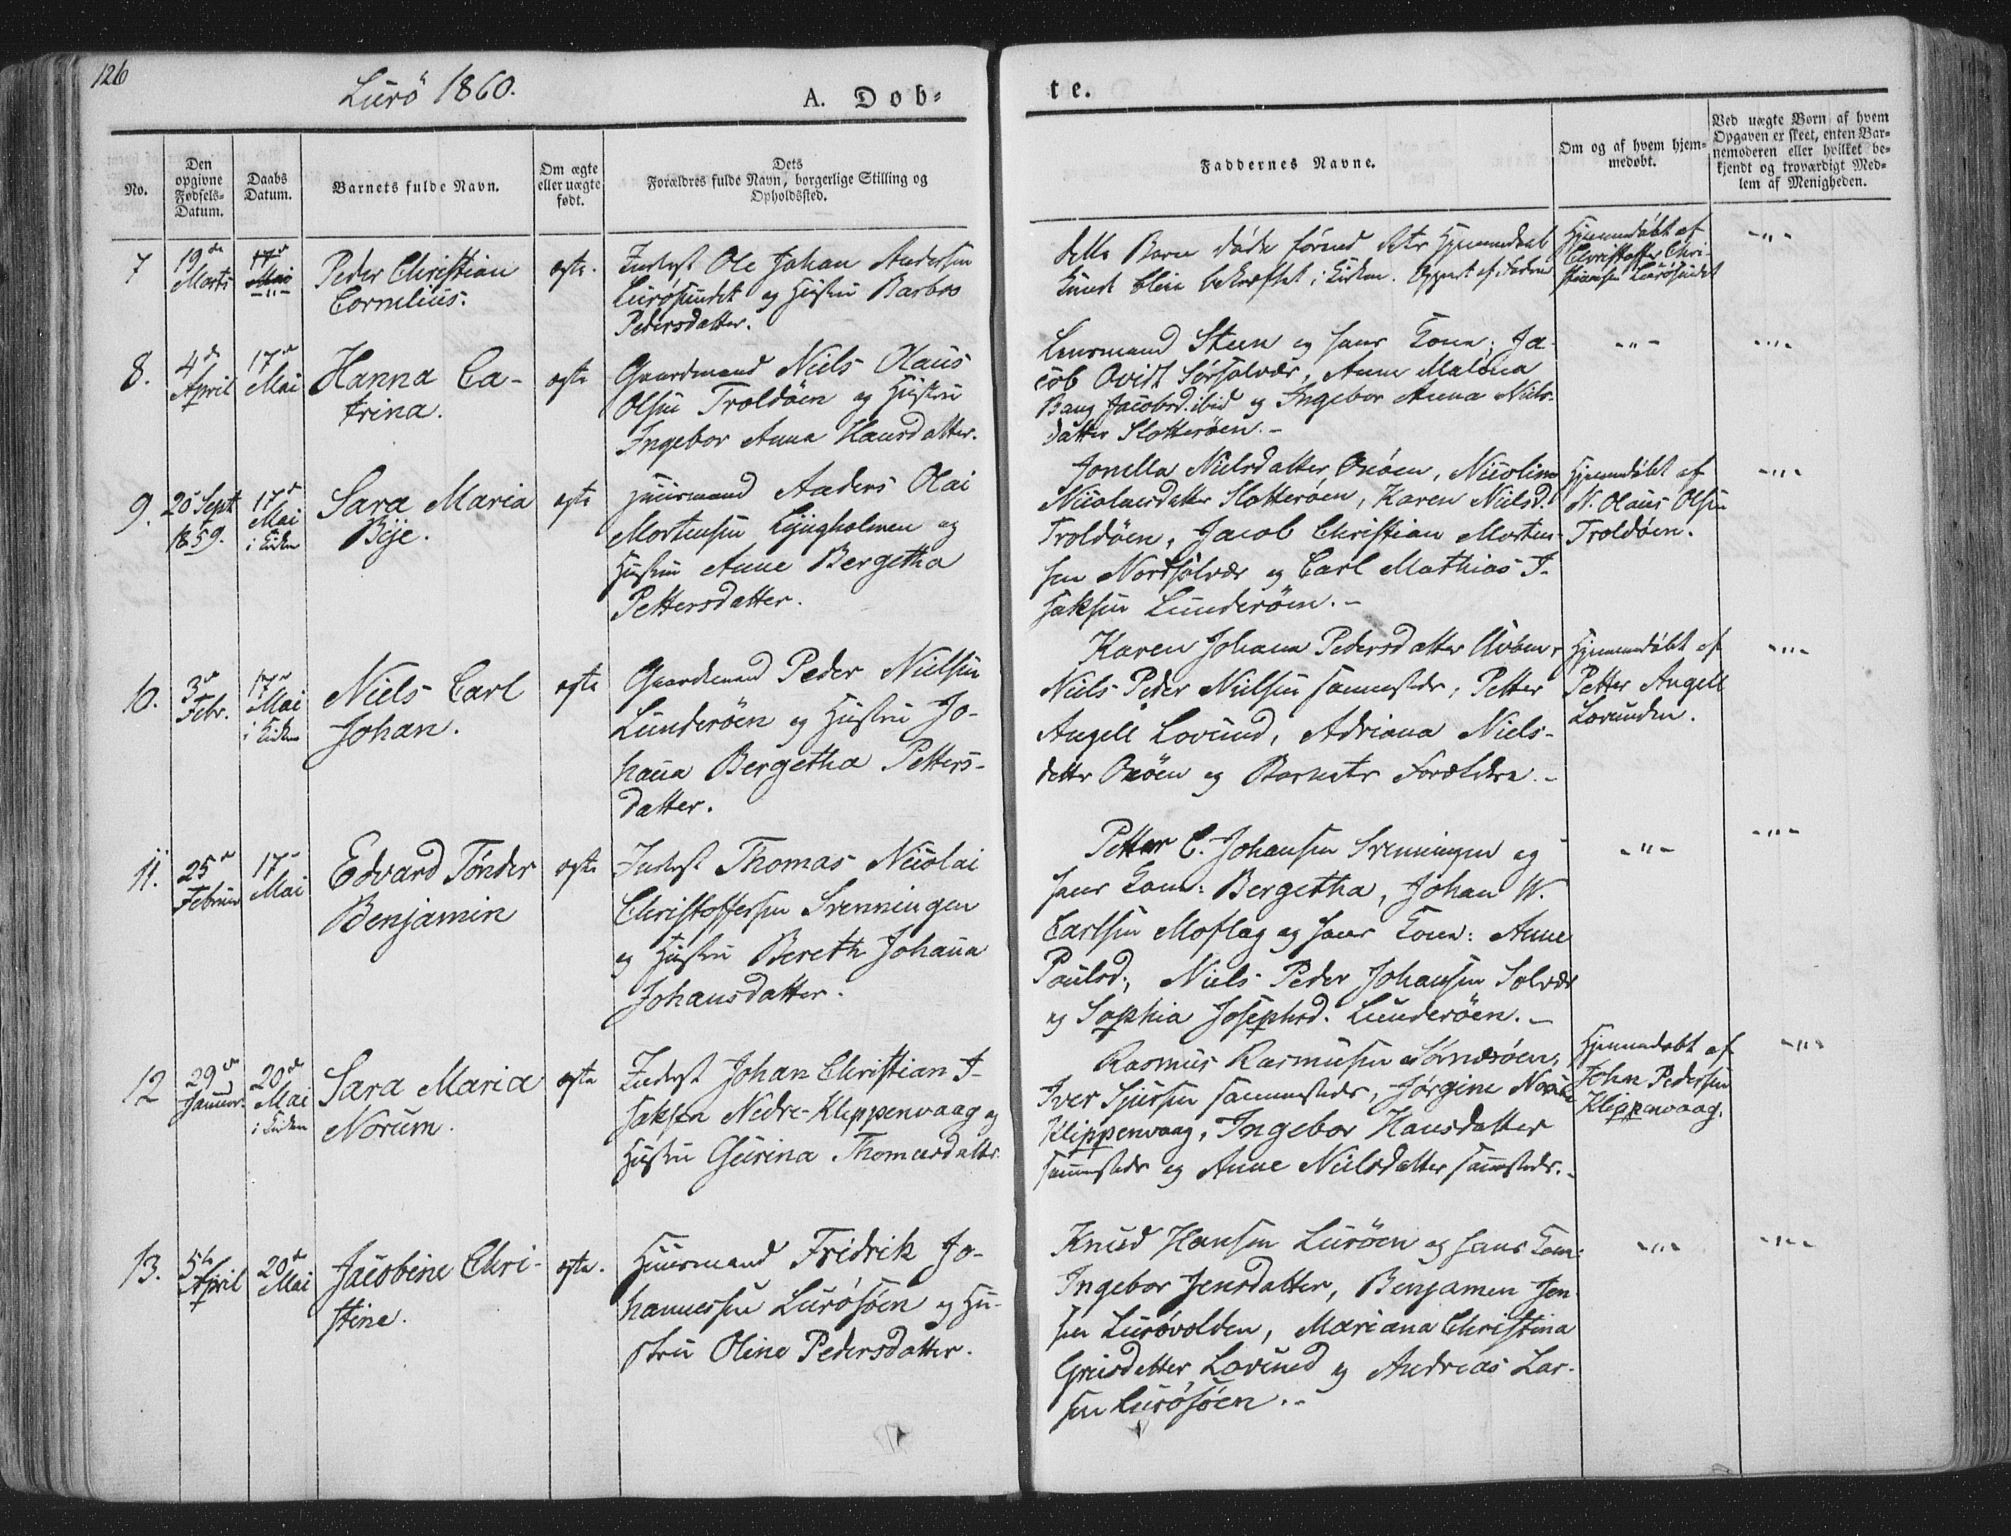 126
Lurö 1860.
A. Døb-
te.
No.
Den opgivne Fødsels-Datum.
Daabs Datum.
Barnets fulde Navn.
Om ægte eller uægte født.
Dets Forældres fulde Navn, borgerlige Stilling og Opholdssted.
Faddernes Navne.
Om og af hvem hjem-
medøbt.
Ved uægte Børn af hvem
Opgaven er skeet, enten Bar-
nemoderen eller hvilket be-
kjendt og troværdigt Med-
lem af Menigheden.
7
19de Marts
17de Mai
-"-
Peder Christian
Cornelius.
ægte.
Inderst Ole Johan Andersen
Lurösundet og Hustru Barbro
Pedersdatter.
dette Barn døde förend dets Hjemmedaab
kunde blive bekræftet i Kirken.
Hjemmedöbt af
Christoffer Chri-
stiansen Lurösundet
-"-
8.
4de April
17de Mai
Hanna Ca-
trina.
ægte
Gaardmand Niels Olaus
Olsen Troldöen og Hustru
Ingebor Anna Hansdatter.
Lensmand Steen og hans Kone, Ja-
cob Qvist Sörsolvær, Anne Malena
Bang Jacobsd. ibid og Ingebor Anna Niels-
datter Slotteröen.-
-"-
-"-
9.
20 Sept 1859.
17de Mai i Kirken
Sara Maria
Bye.
ægte
Huusmand Anders Olai
Mortensen Lyngholmen og
Hustru Anne Bergetha
Pettersdatter.
Jonella Nielsdatter Oxöen, Nicoline
Nicolaisdatter Slotteröen, Karen Nielsd.
Troldöen, Jacob Christian Morten-
sen Nordsolvær og Carl Mathias I-
saksen Lunderöen.-
Hjemmedöbt af
N. Olaus Olsen
Troldöen.
-"-
10.
3de Febr.
17de Mai i Kirken
Niels Carl
Johan.
ægte
Gaardmand Peder Nielsen
Lunderöen og Hustru Jo-
hana Bergetha Petters-
datter.
Karen Johana Pedersdatter
Niels Peder Nielsen sammesteds, Petter
Angell Lovund, Adriana Niels-
datter Oxöen og Barnets Forældre.-
Hjemmedöbt af
Petter Angell
Lovunden.
-"-
11.
25de Februar
17de Mai
Edvard Tönder
Benjamin
ægte
Inderst Thomas Nicolai
Christoffersen Svenningen
og Hustru Bereth Johana
Johansdatter.
Petter C. Johansen Svenningen og
hans Kone: Bergetha, Johan W.
Carlsen Moflag og hans Kone: Anne
Paulsd., Niels Peder Johansen Solvær
og Sophia Josephsd. Lunderöen.-
-"-
-"-
12
29de Januar.
20de Mai i Kirken
Sara Maria
Norum.
ægte
Inderst Johan Christian I-
saksen Nedre-Klippenvaag og
Hustru Gurina Thomasdatter.
Rasmus Rasmussen Sörnesöen,
Iver Sjursen sammesteds, Jörgine
Klippenvaag, Ingebor Hansdatter
sammesteds og Anne Nielsdatter sammesteds.-
Hjemmedøbt af
John Pedersen
Klippenvaag.
-"-
13.
5te April
20de Mai
Jacobine Chri-
stine.
ægte.
Huusmand Fridrik Jo-
hannessen Lurösöen og Hu-
stru Oline Pedersdatter.
Knud Hansen Luröen og hans Kone
Ingebor Jensdatter, Benjamen Jen
sen LuröVolden, Mariana Christina
Greisdatter Lovund og Andreas Lar-
sen Lurösöen.-
-"-
-"-